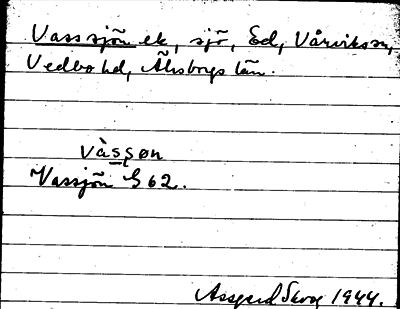 Vasssjön ek, sjö, Ed, Vårviks sn,
Vedbo hd, Älvsborgs län.
vàssøn
Vassjön G 62.
Assgerd Skog 1944.